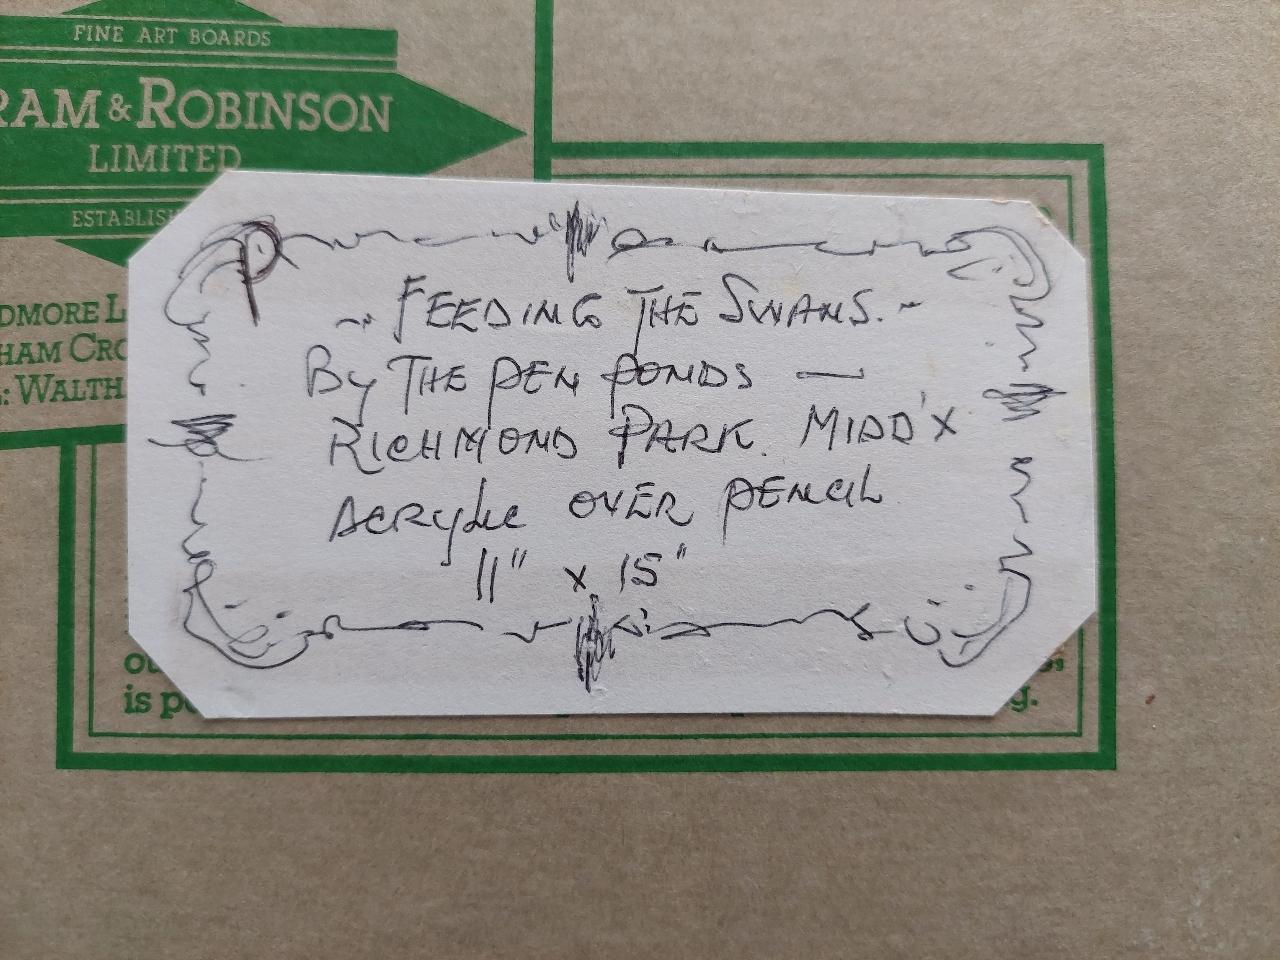 FINE ART BOARDS
RAM & ROBINSON
LIMITED
ESTABLIS
DMORE L
HAM CRO
: WALTH
P
~ FEEDING THE SWANS. ~
BY THE PEN PONDS —
RICHMOND PARK. MIDD'X
ACRYLIC OVER PENCIL
11" x 15"
ou
is po
g.